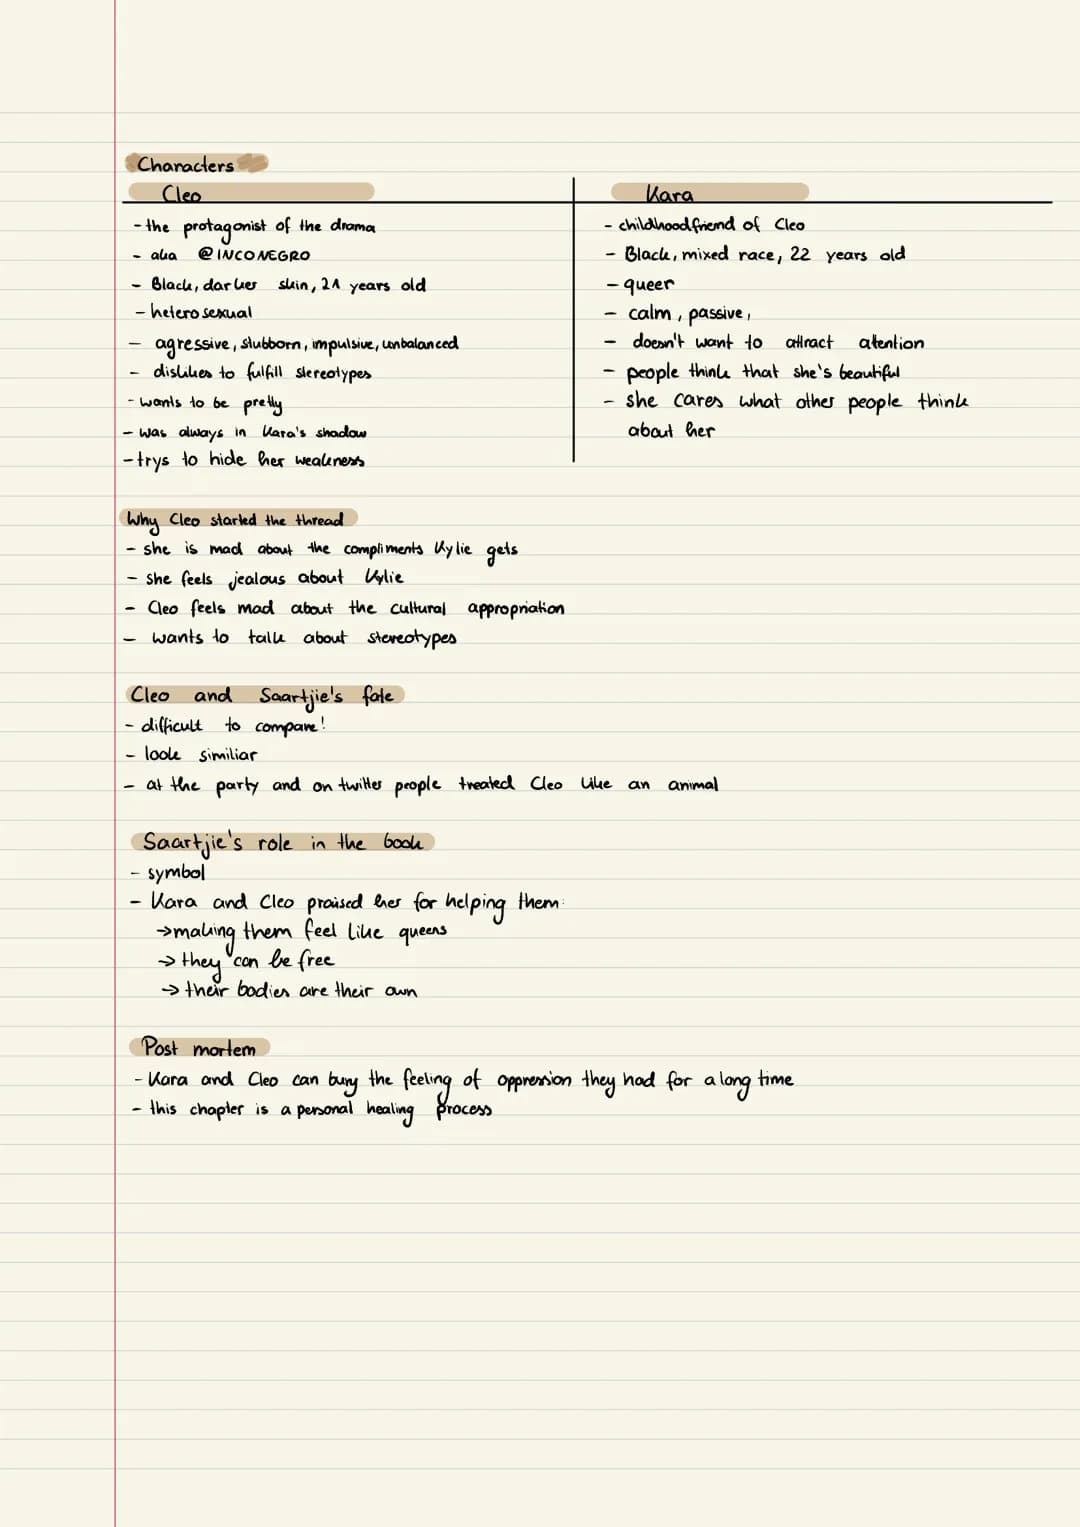 Characters
Cleo
- the protagonist of the drama
- aka @INCONEGRO
- Black, darker skin, 21 years old
- heterosexual
- agressive, stubborn, impulsive, unbalanced
- dislikes to fulfill stereotypes
- wants to be pretty
- was always in Kara's shadow
- trys to hide her weakness
Kara
- childhoodfriend of Cleo
- Black, mixed race, 22 years old
- queer
- calm, passive,
- doesn't want to attract atention
- people think that she's beautiful
- she cares what other people think
about her
Why Cleo started the thread
- she is mad about the compliments Kylie gets
- she feels jealous about Kylie
- Cleo feels mad about the cultural appropriation
- wants to talk about stereotypes
Cleo and Saartjie's fate
- difficult to compare!
- look similiar
- at the party and on twitter people treated Cleo like an animal
Saartjie's role in the book
- symbol
- Kara and Cleo praised her for helping them:
→ making them feel like queens
→ they can be free
→ their bodies are their own
Post mortem
- Kara and Cleo can bury the feeling of oppression they had for a long time
- this chapter is a personal healing process